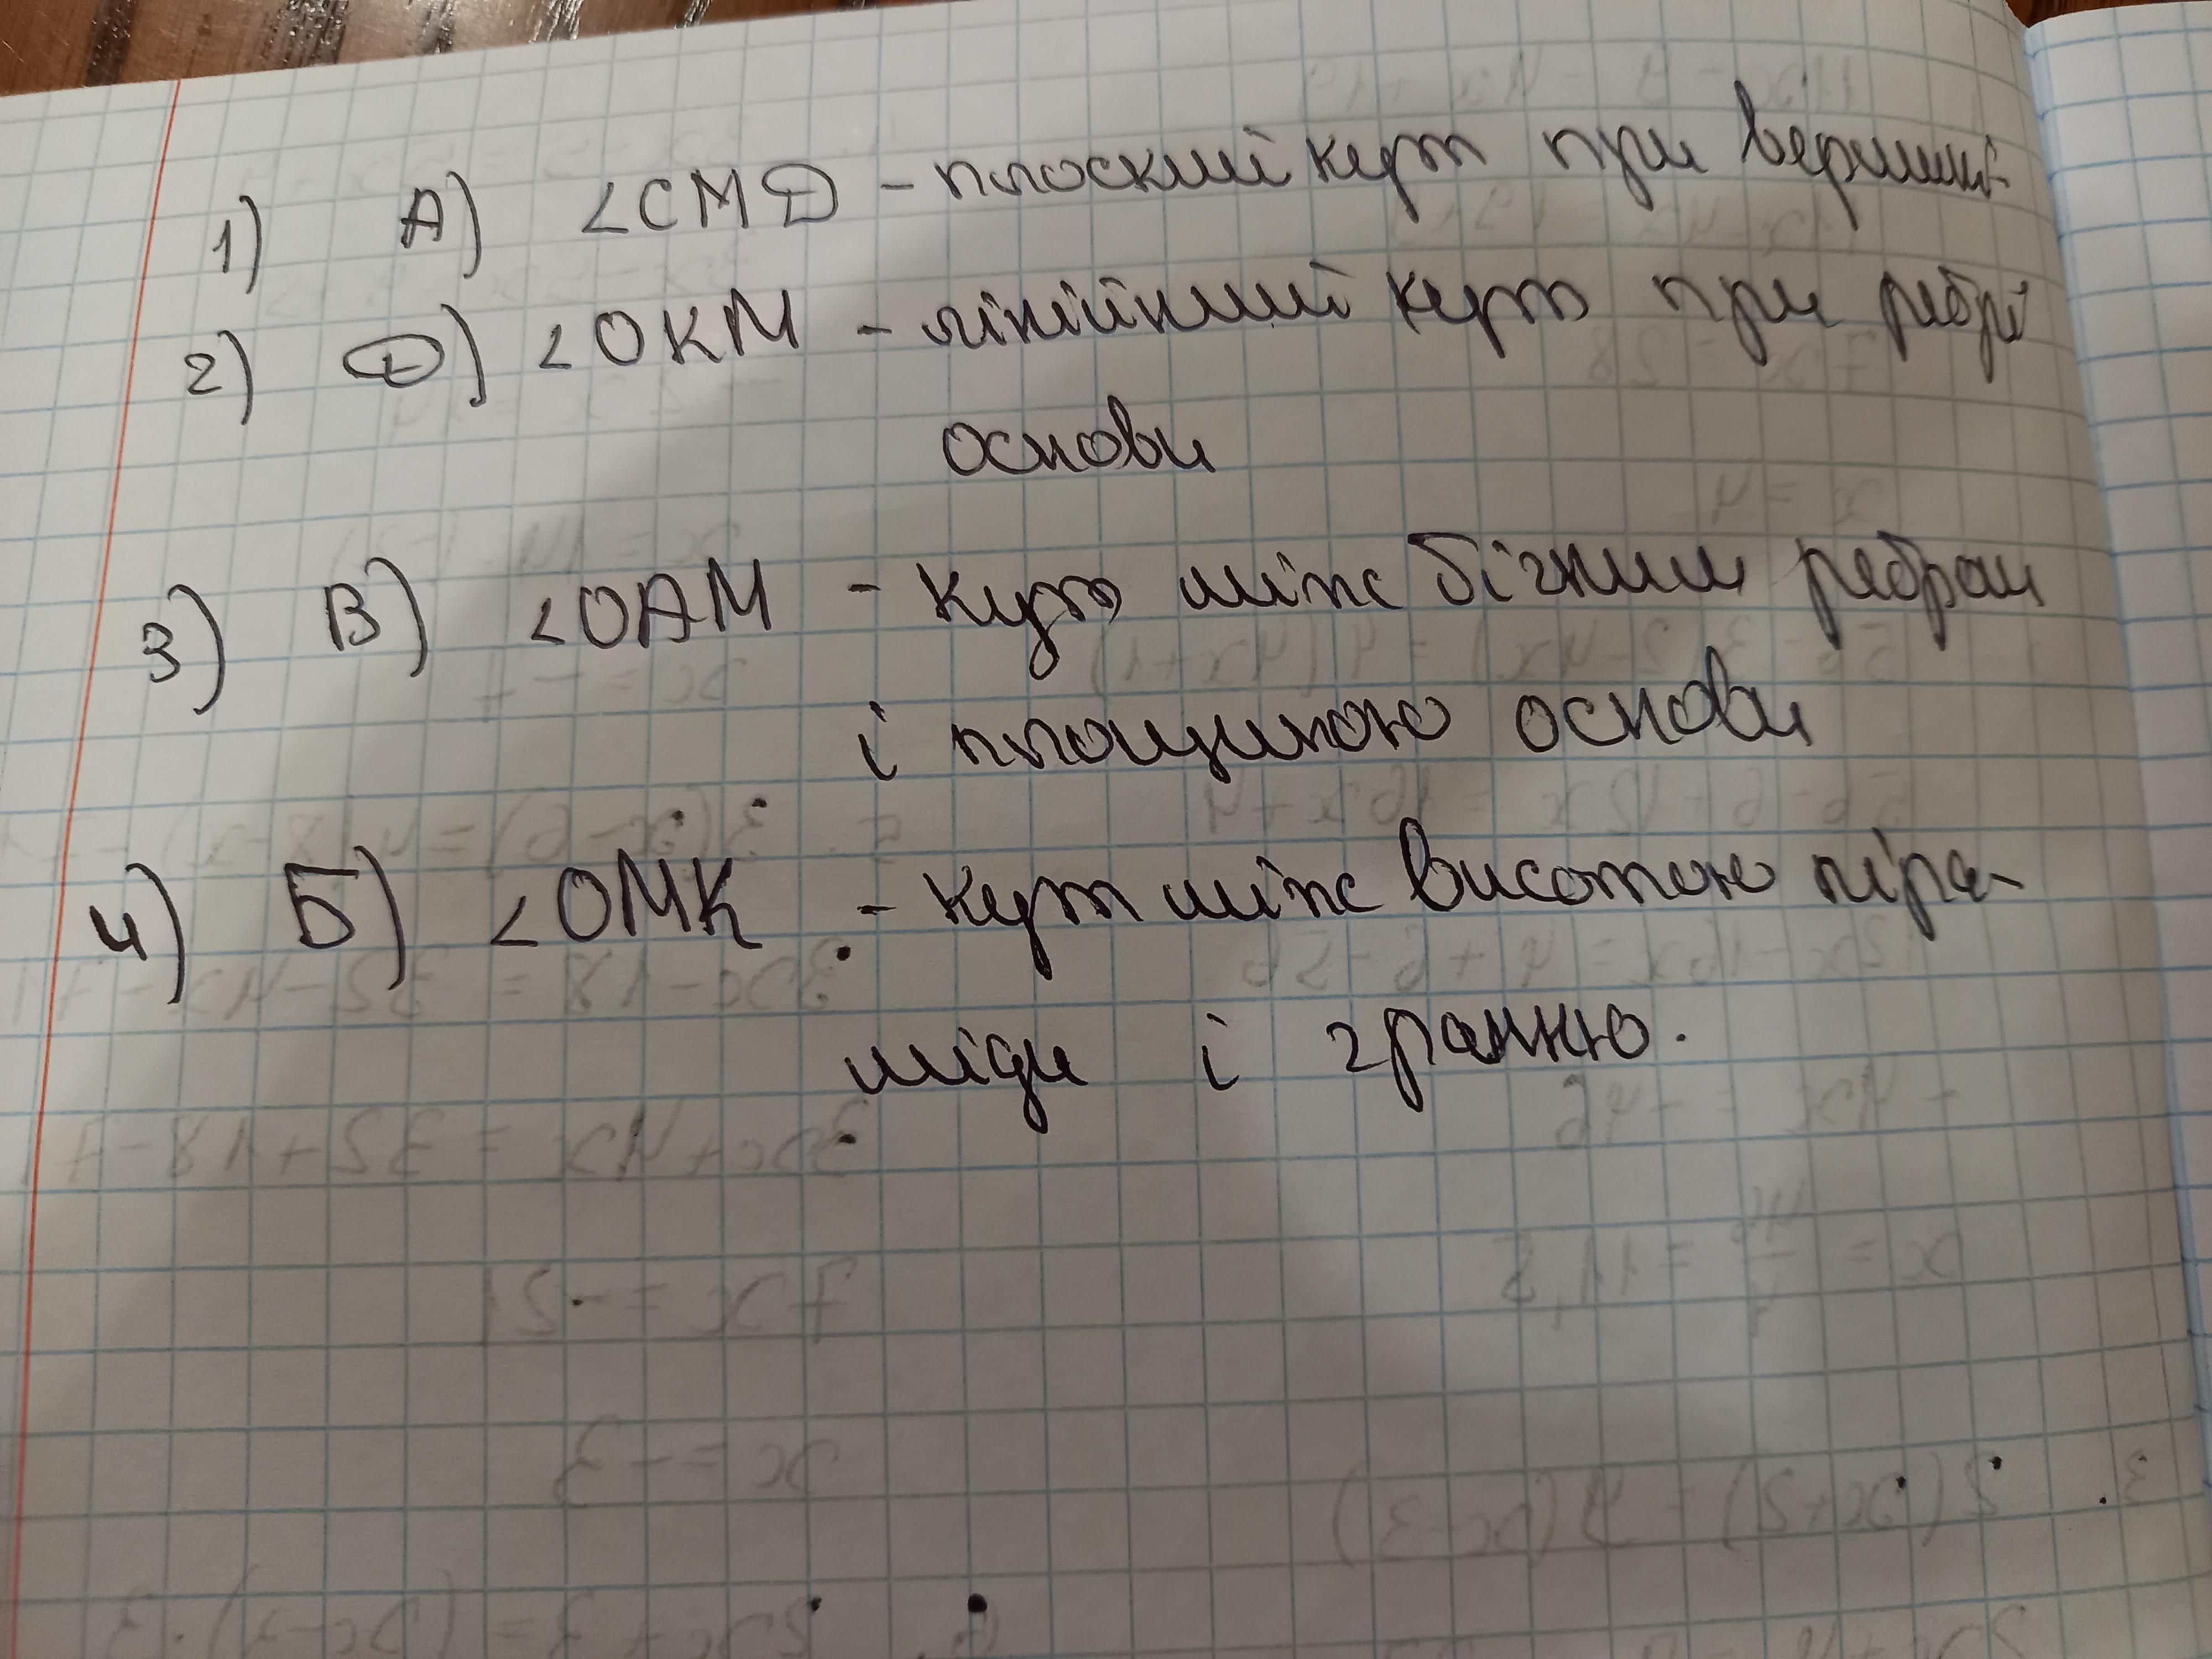 1) А) ∠СМД - плоский кут при вершині
2) Д) ∠ОКМ - лінійний кут при ребрі
основи
3) В) ∠ОАМ - Кут між бічним ребром
і площиною основи
4) Б) ∠ОМК - кут між висотою піра-
міди і гранню.